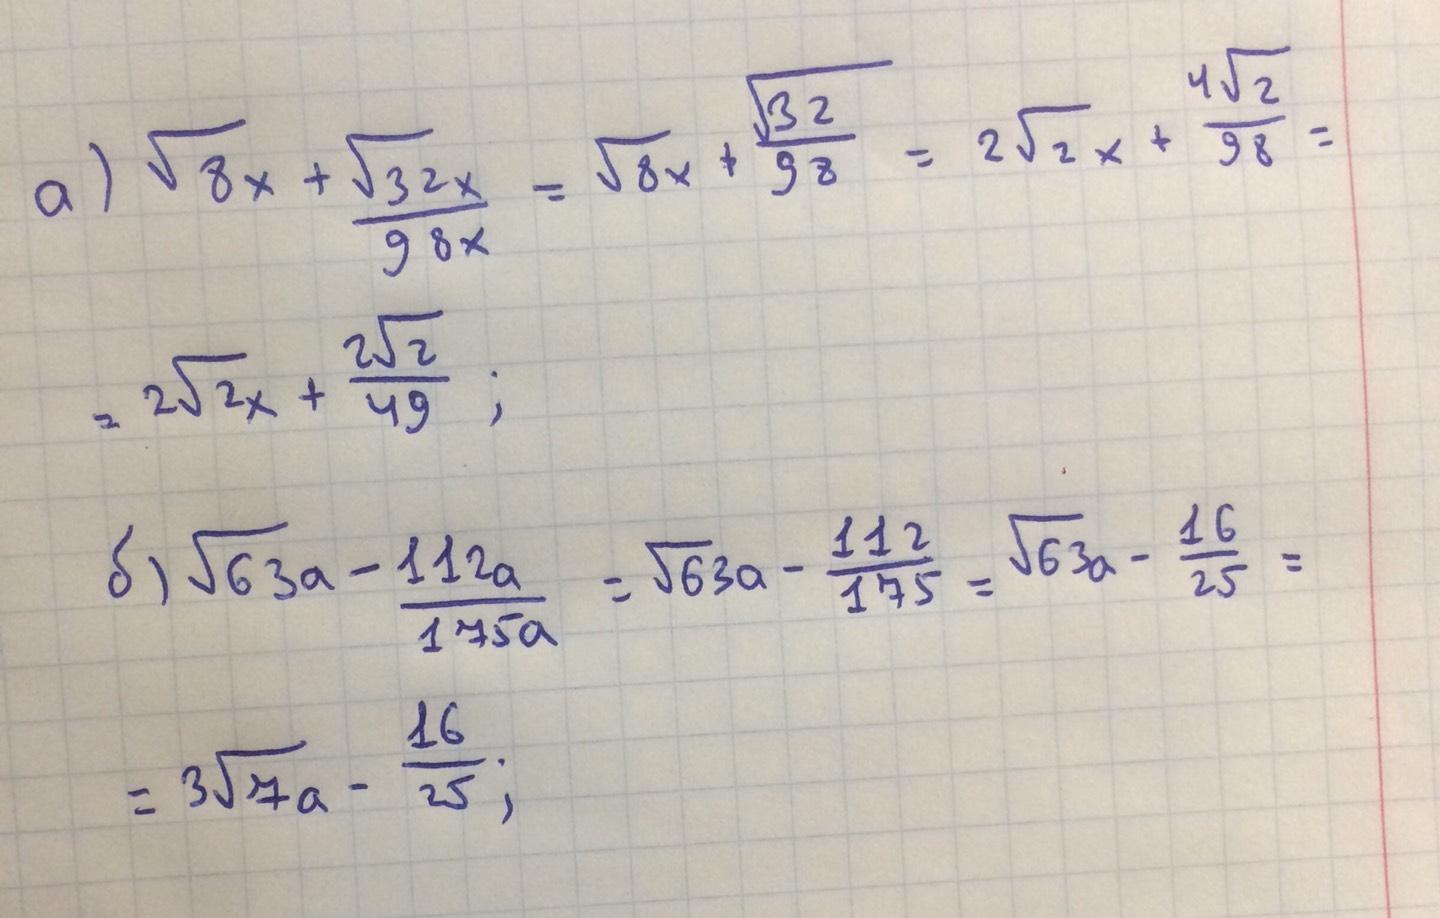 а) √8x + √32x/98x = √8x + √32/98 = 2√2x + 4√2/98 =
= 2√2x + 2√2/49 ;
б) √63a - 112a/175a = √63a - 112/175 = √63a - 16/25 =
= 3√7a - 16/25 ;